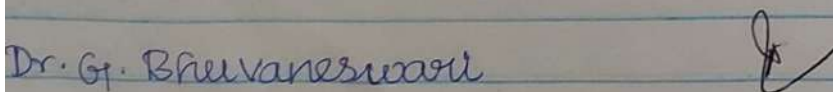 Dr. G. Bhuvaneswari